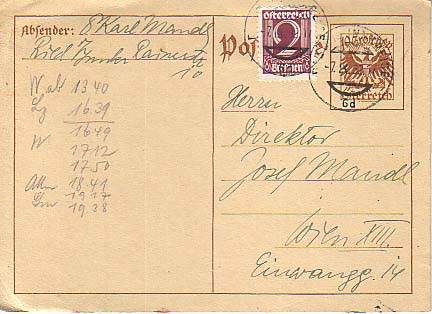 Absender: P Karl Mandl
Ried i/
10
Pos
österreich
2
Groschen
österreich
Herrn
Direktor
Josef Mandl
Wien XIII.
Einwangg. 14
W ab 13 40
16.39
W 16.49
17.12
17.50
18.41
19.17
19.38